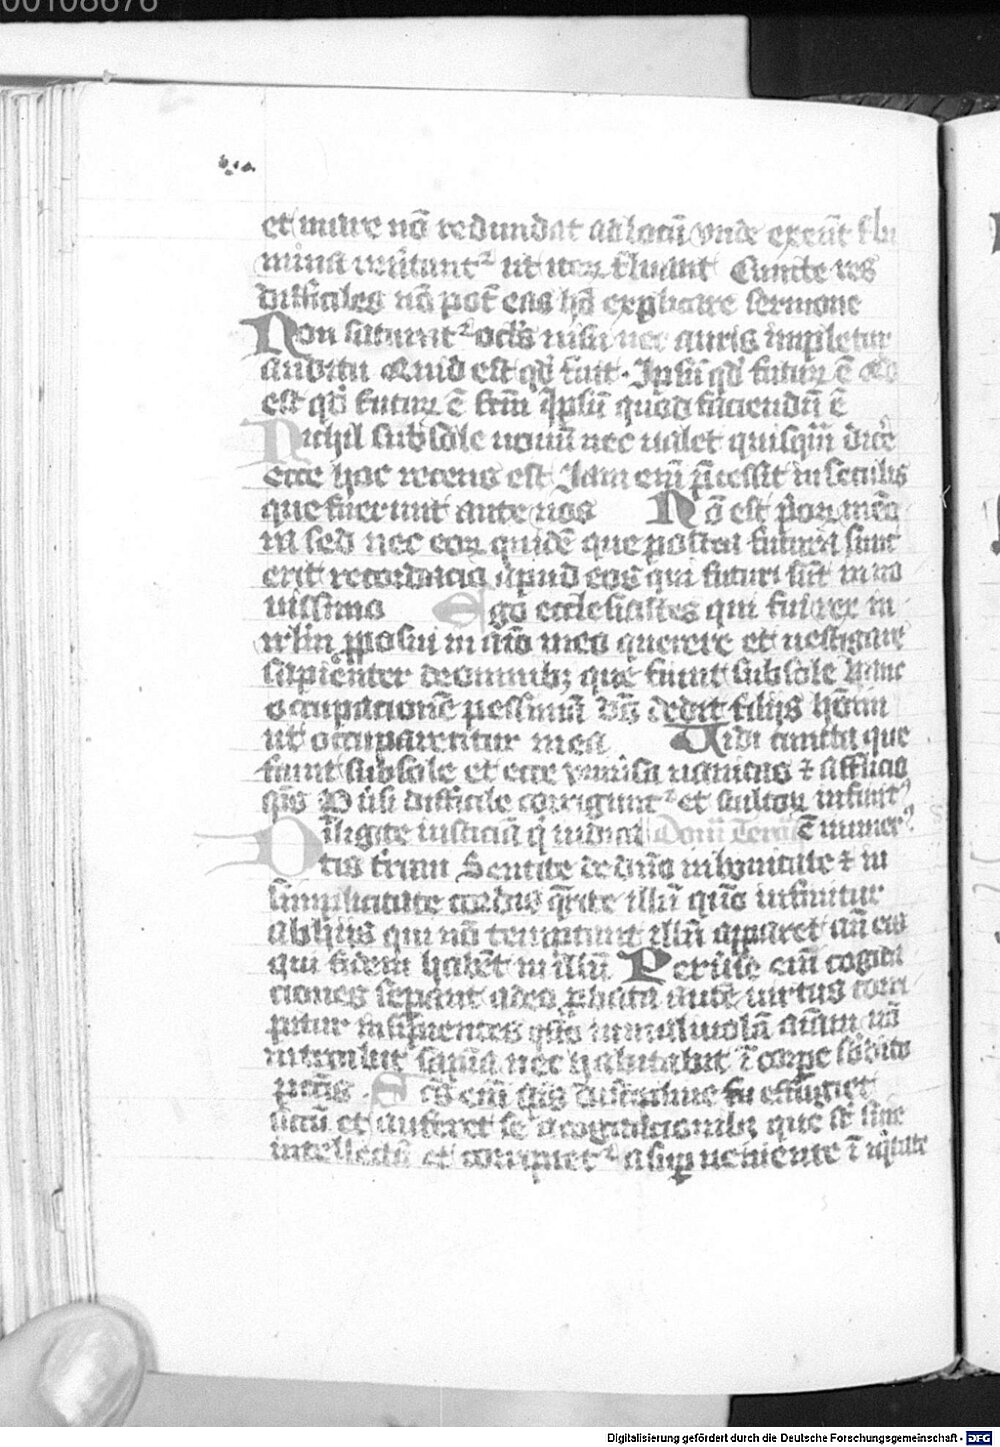 00108676
et mare nō redundat ad locū vnde exeūt flu
mina reūtuntᷣ ut iterꝝ fluant Cuncte res
difficiles nō pot̄ eas hō explicare sermone
Non saturatᷣ ocl̄s uisu nec auris impletur
auditu Quid est qd̄ fuit · Ipsū qd̄ futurꝝ ē Qd̄
est qd̄ futurꝝ ē Ipsū quod faciendū ē
Nichil sub sole nouū nec ualet quisqm̄ dic̄e
ecce hoc recens est Iam eni p̄cessit in seculis
que fuerunt ante nos Nō est p̄orꝝ mēo
ia sed nec eorꝝ quidē que postea futura sunt
erit recordacio apud eos qui futuri sūt in no
uissimo Ego ecclesiastes qui fui rex in
irl̄m ꝓposui in aīo meo querere et uestigare
sapienter de omnibꝫ que fiunt sub sole Hanc
occupacionē pessimā dedit filijs hōim
ut occuparentur in ea Uidi cuncta que
fiunt sub sole et ecce vniūsa uanitas ⁊ afflictio
sp̄s Pūsi difficile corrigunt᷑ et stultorꝝ infinit᷒
Diligite iusticiā q̄ iudicat ē numer᷒
tis terram Sentite de dn̄o in bonitate ⁊ in
simplicitate cordis q̄rite illū qm̄ inuenitur
ab hijs qui nō temptant illū apparet aūt eis
qui fidem habēt in illū Peruise em̄ cogita
ciones sepant a deo ꝓbata autē uirtus corri
pitur insipientes qm̄ in maliuolā aīam nō
introibit sapiā nec habitabit ī corpe sb̄dito
pctīs · Scs em̄ sp̄s discipline effugiet
fictū et auferet se a cogitacionibꝫ que st̄ sine
intellectu et corripiet᷑ a supueniente ī iq̄tate
Digitalisierung gefördert durch die Deutsche Forschungsgemeinschaft - DFG